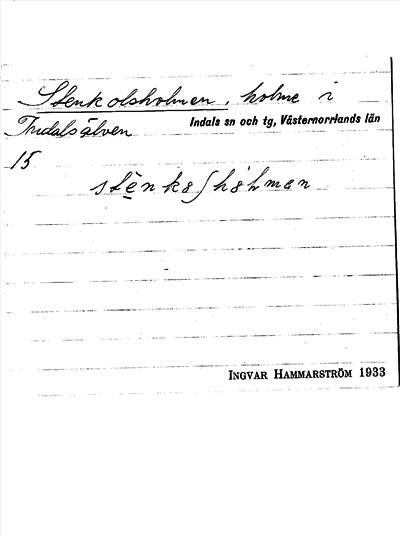 Stenkolsholmen, holme i
Indalsälven
Indals sn och tg, Västernorrlands län
15
INGVAR HAMMARSTRÖM 1933